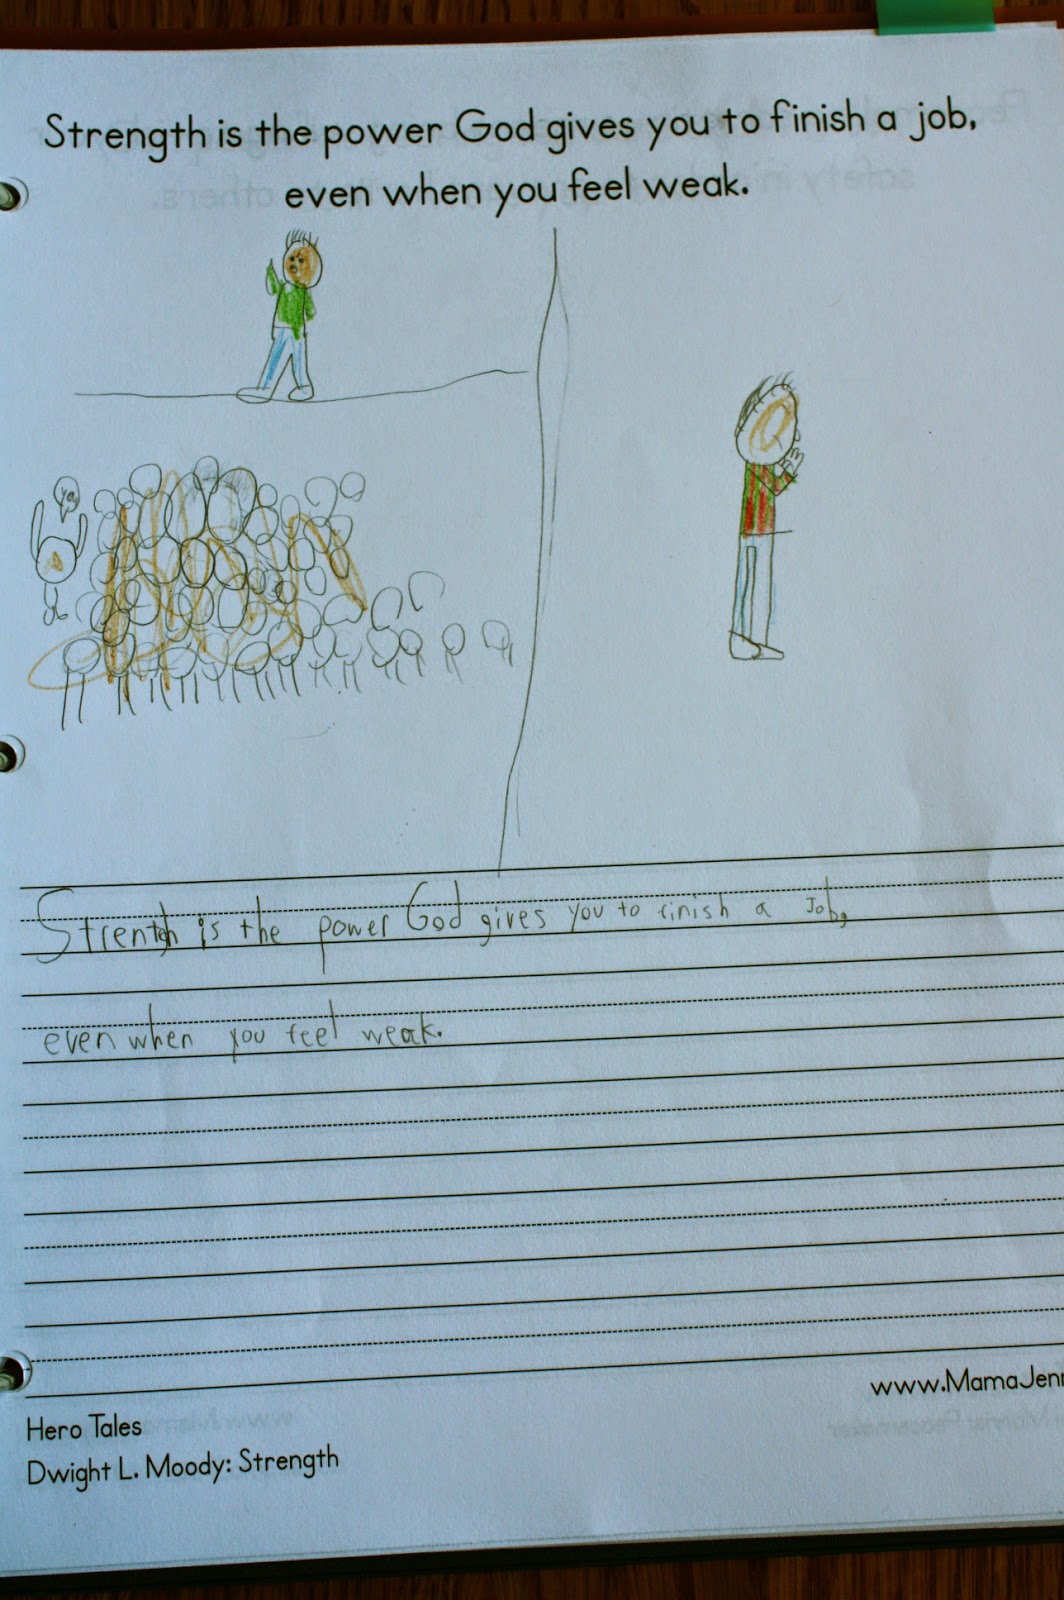 Strength is the power God gives you to finish a job,
even when you feel weak.
Strentgh is the power God gives you to finish a Job,
even when you feel weak.
www.MamaJenn
Hero Tales
Dwight L. Moody: Strength